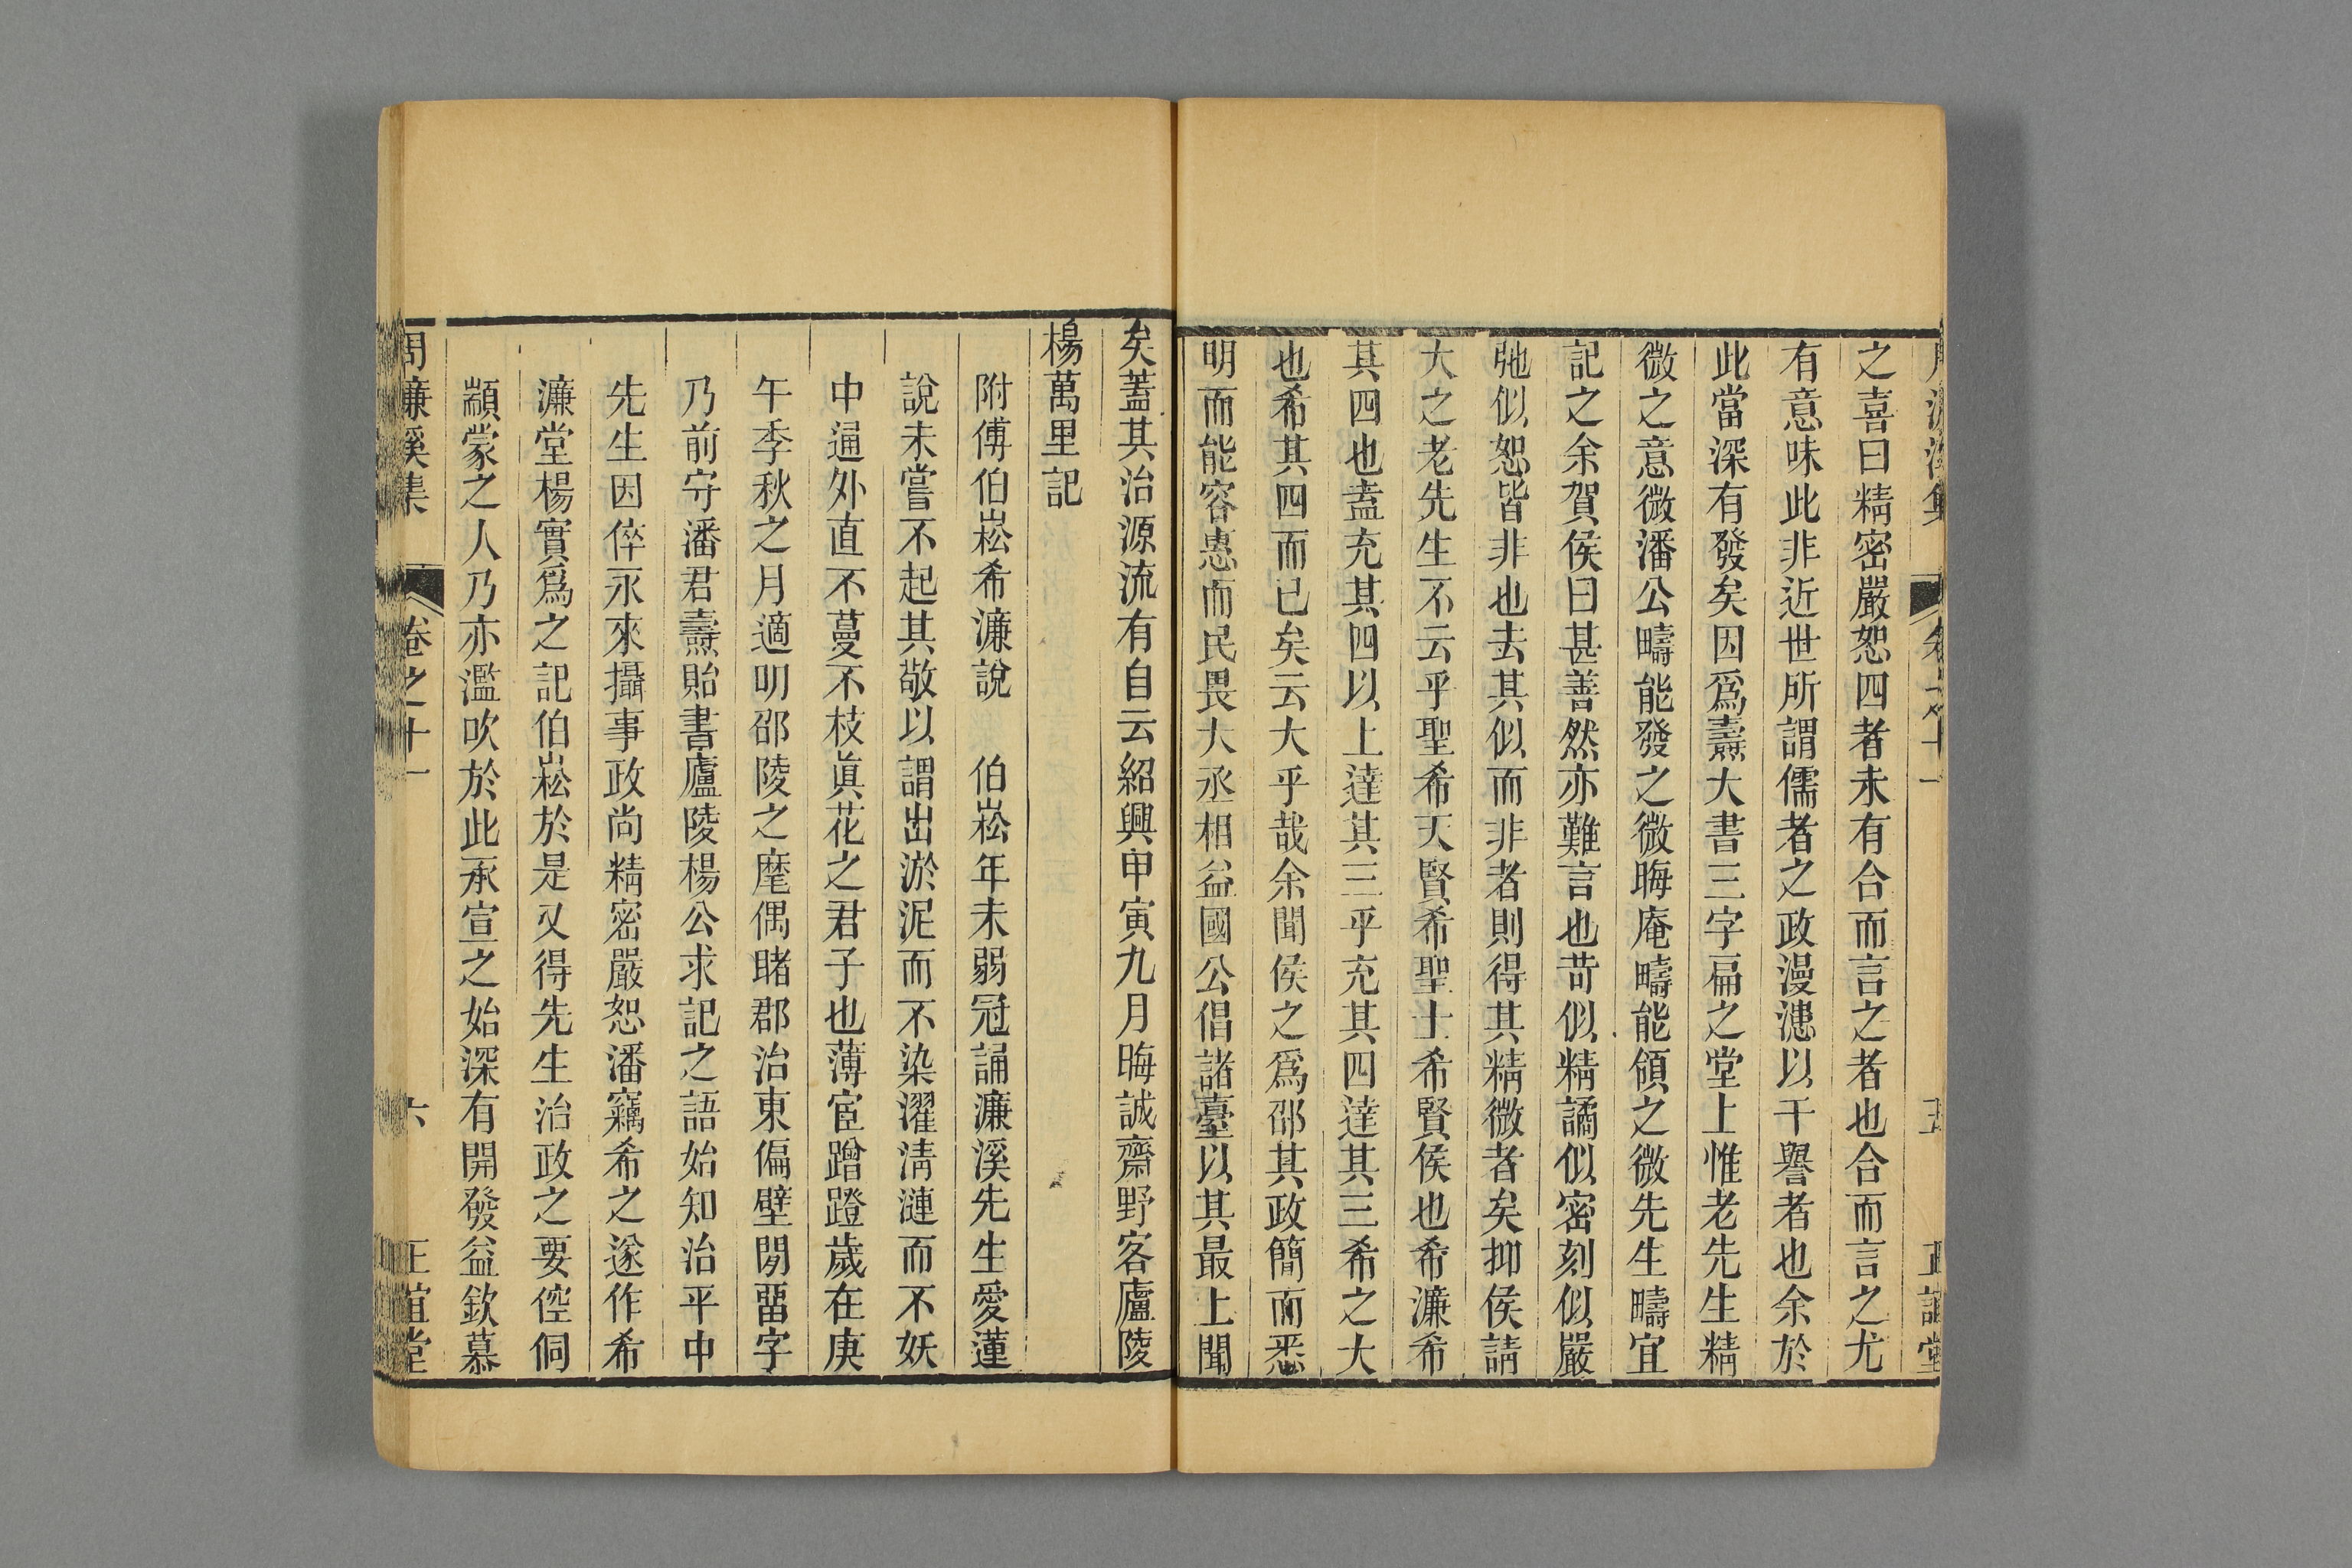 之喜曰精密嚴恕四者未有合而言之者也合而言之尤
有意味此非近世所謂儒者之政漫漶以干譽者也余於
此當深有發矣因爲燾大書三字扁之堂上惟老先生精
微之意微潘公疇能發之微晦庵疇能領之微先生疇宜
記之余賀侯曰甚善然亦難言也苛似精譎似密刻似嚴
弛似恕皆非也去其似而非者則得其精微者矣抑侯請
大之老先生不云乎聖希天賢希聖士希賢侯也希濂希
其四也盍充其四以上達其三乎充其四達其三希之大
也希其四而已矣云大乎哉余聞侯之爲邵其政簡而悉
明而能容惠而民畏大丞相益國公倡諸臺以其最上聞
矣蓋其治源流有自云紹興甲寅九月晦誠齋野客廬陵
楊萬里記
附傅伯崧希濂說　伯崧年未弱冠誦濂溪先生愛蓮
說未嘗不起其敬以謂出淤泥而不染濯淸漣而不妖
中通外直不蔓不枝眞花之君子也薄宦蹭蹬歲在庚
午季秋之月適叨邵陵之麾偶睹郡治東偏壁閒畱字
乃前守潘君燾貽書廬陵楊公求記之語始知治平中
先生因倅永來攝事政尚精密嚴恕潘竊希之遂作希
濂堂楊實爲之記伯崧於是又得先生治政之要倥侗
顓蒙之人乃亦濫吹於此承宣之始深有開發益欽慕
周濂溪集　卷之十一　六　正誼堂